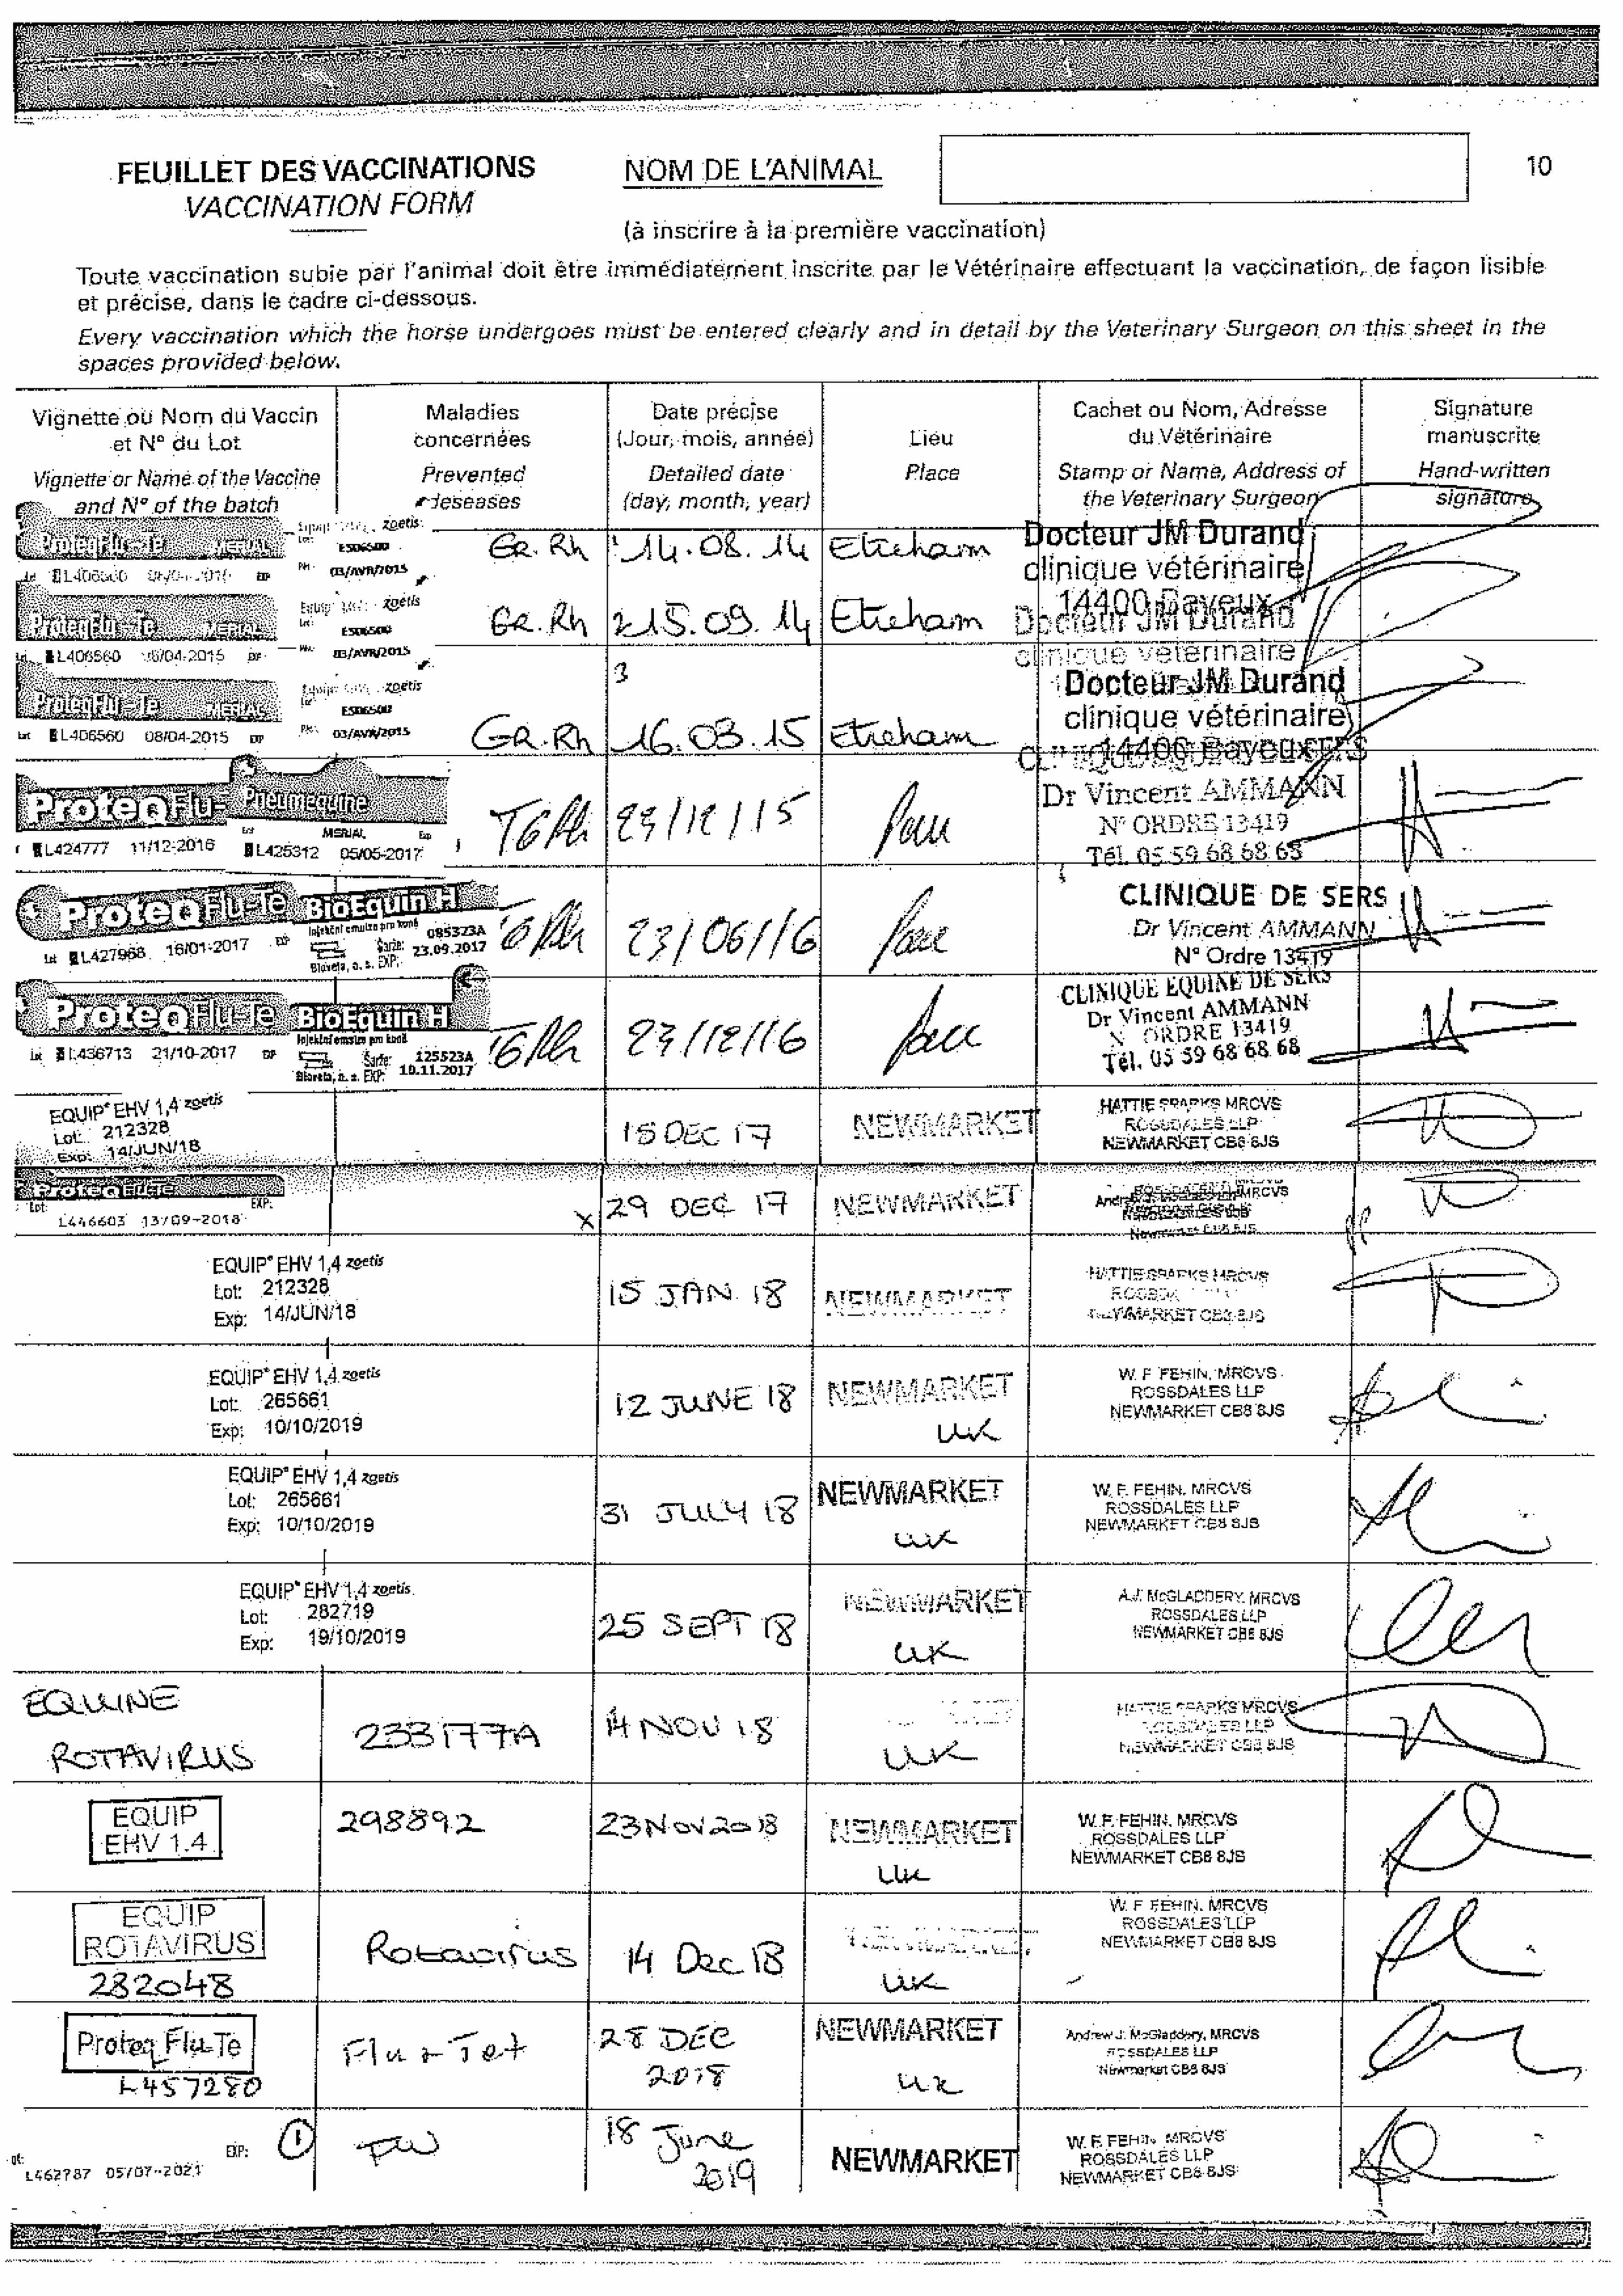 FEUILLET DES VACCINATIONS
VACCINATION FORM
NOM DE L'ANIMAL
10
(à inscrire à la première vaccination)
Toute vaccination subie par l'animal doit être immédiatement inscrite par le Vétérinaire effectuant la vaccination, de façon lisible
et précise, dans le cadre ci-dessous.
Every vaccination which the horse undergoes must be entered clearly and in detail by the Veterinary Surgeon on this sheet in the
spaces provided below.
Vignette ou Nom du Vaccin
et N° du Lot
Vignette or Name of the Vaccine
and N° of the batch
Maladies
concernées
Prevented
deseases
Date précise
(Jour, mois, année)
Detailed date
(day, month, year)
Lieu
Place
Cachet ou Nom, Adresse
du Vétérinaire
Stamp or Name, Address of
the Veterinary Surgeon
Signature
manuscrite
Hand-written
signature
ProteqFlu-Te MERIAL
zoetis
03/AVR/2015
GR.Rh
14.08.14
Etreham
Docteur JM Durand
clinique vétérinaire
14400 Bayeux
ProteqFlu-Te MERIAL
L406560
zoetis
03/AVR/2015
GR.Rh
15.09.14
Etreham
Docteur JM Durand
clinique vétérinaire
ProteqFlu-Te MERIAL
Lot L406560 08/04-2015 EXP
zoetis
03/AVR/2015
3
GR.Rh
16.03.15
Etreham
Docteur JM Durand
clinique vétérinaire
14400 Bayeux
ProteqFlu- Pneumequine
MERIAL
L424777 11/12-2016 L425312 05/05-2017
TGRh
23/12/15
Pau
Dr Vincent AMMANN
N° ORDRE 13419
Tél. 05 59 68 68 68
ProteqFlu-Te BioEquin H
Injekční emulze pro koně
Lot L427968 16/01-2017 EXP
Šarže: 085323A
Bioveta, a. s. EXP: 23.09.2017
TGRh
23/06/16
Pau
CLINIQUE DE SERS
Dr Vincent AMMANN
N° Ordre 13419
ProteqFlu-Te BioEquin H
Injekční emulze pro koně
Lot L436713 21/10-2017 EXP
Šarže: 125523A
Bioveta, a. s. EXP: 10.11.2017
TGRh
23/12/16
Pau
CLINIQUE EQUINE DE SERS
Dr Vincent AMMANN
N° ORDRE 13419
Tél. 05 59 68 68 68
EQUIP® EHV 1,4 zoetis
Lot: 212328
Exp: 14/JUN/18
15 DEC 17
NEWMARKET
HATTIE SPARKS MRCVS
ROSSDALES LLP
NEWMARKET CB8 8JS
ProteqFlu-Te
Lot: EXP:
L446603 13/09-2018
x 29 DEC 17
NEWMARKET
EQUIP® EHV 1,4 zoetis
Lot: 212328
Exp: 14/JUN/18
15 JAN 18
NEWMARKET
HATTIE SPARKS MRCVS
NEWMARKET CB8 8JS
EQUIP® EHV 1,4 zoetis
Lot: 265661
Exp: 10/10/2019
12 JUNE 18
NEWMARKET
UK
W. F. FEHIN, MRCVS
ROSSDALES LLP
NEWMARKET CB8 8JS
EQUIP® EHV 1,4 zoetis
Lot: 265661
Exp: 10/10/2019
31 JULY 18
NEWMARKET
UK
W. F. FEHIN. MRCVS
ROSSDALES LLP
NEWMARKET CB8 8JS
EQUIP® EHV 1,4 zoetis
Lot: 282719
Exp: 19/10/2019
25 SEPT 18
NEWMARKET
UK
A.J. McGLADDERY, MRCVS
ROSSDALES LLP
NEWMARKET CB8 8JS
EQUINE
ROTAVIRUS
233177A
14 NOV 18
UK
HATTIE SPARKS MRCVS
ROSSDALES LLP
NEWMARKET CB8 8JS
EQUIP
EHV 1.4
298892
23 NOV 2018
NEWMARKET
UK
W. F. FEHIN, MRCVS
ROSSDALES LLP
NEWMARKET CB8 8JS
EQUIP
ROTAVIRUS
282048
Rotavirus
14 Dec 18
UK
W. F. FEHIN. MRCVS
ROSSDALES LLP
NEWMARKET CB8 8JS
Proteq Flu-Te
L457280
Flu + Tet
28 DEC
2018
NEWMARKET
UK
Andrew J. McGladdery, MRCVS
ROSSDALES LLP
Newmarket CB8 8JS
L462787 05/07-2021
EXP:
1
18 June
2019
NEWMARKET
W. F. FEHIN, MRCVS
ROSSDALES LLP
NEWMARKET CB8 8JS